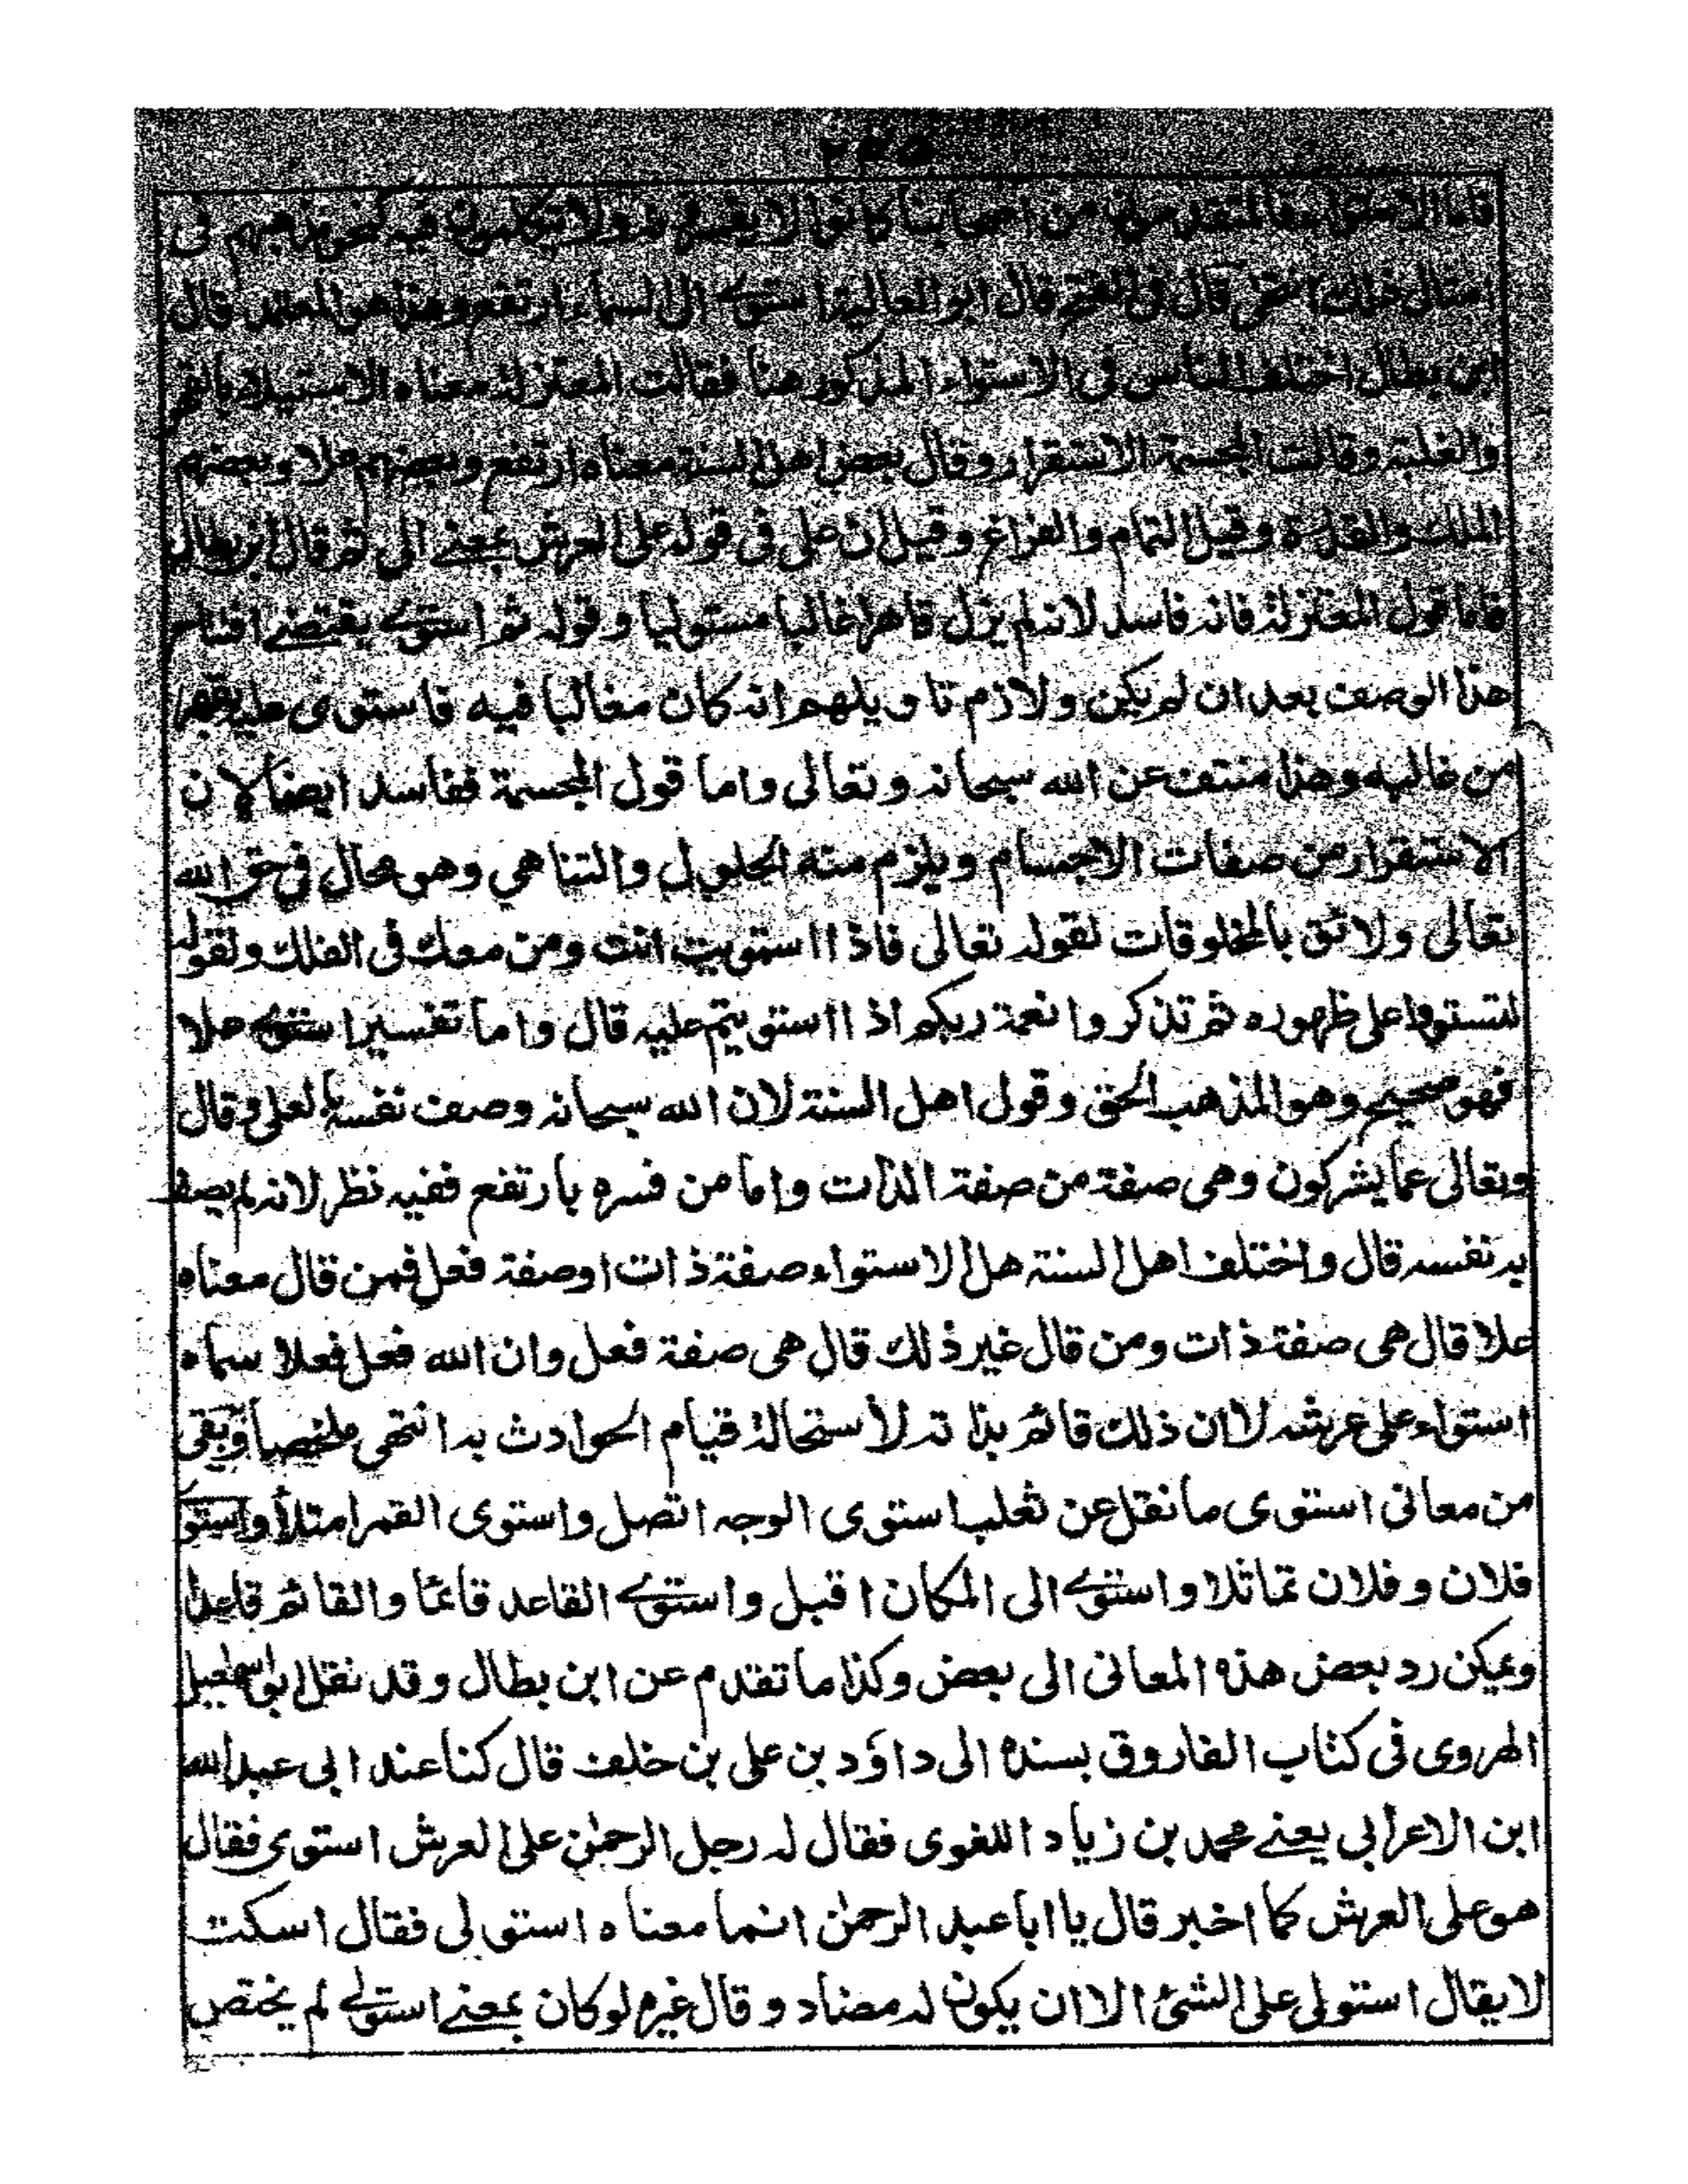 فاما الاستواء فالمتقدمون من اصحابنا كانوا لا يفسرونه ولا يتكلمون فيه كنحو مذاهبهم فى
امثال ذلك انتهى قال فى الفتح قال ابو العالية استوے الى السماء ارتفع وهذا هو المعتمد قال
ابن بطال اختلف الناس فى الاستواء المذكور هنا فقالت المعتزلة معناه الاستيلاء بالقهر
والغلبة وقالت المجسمة الاستقرار وقال بعض اهل السنة معناه ارتفع وبعضهم علا وبعضهم
الملك والقدرة وقيل التمام والفراغ وقيل ان على فى قوله على العرش بمعنے الى ثم قال ابن بطال
فاما قول المعتزلة فانه فاسد لانه لم يزل قاهرا غالبا مستوليا وقوله ثم استوے يقتضے افتتاح
هذا الوصف بعد ان لم يكن ولازم تاويلهم انه كان مغالبا فيه فاستوى عليه بقهر
من غالبه وهذا منتف عن الله سبحانه وتعالى واما قول المجسمة ففاسد ايضا لان
الاستقرار من صفات الاجسام ويلزم منه الحلول والتناهي وهو محال فى حق الله
تعالى ولائق بالمخلوقات لقوله تعالى فاذا استويت انت ومن معك فى الفلك ولقوله
لتستووا على ظهوره ثم تذكروا نعمة ربكم اذا استويتم عليه قال واما تفسير استوے علا
فهو صحيح وهو المذهب الحق وقول اهل السنة لان الله سبحانه وصف نفسه بالعلى وقال
وتعالى عما يشركون وهى صفة من صفة الذات واما من فسره بارتفع ففيه نظر لانه لم يصف
به نفسه قال واختلف اهل السنة هل الاستواء صفة ذات او صفة فعل فمن قال معناه
علا قال هى صفة ذات ومن قال غير ذلك قال هى صفة فعل وان الله فعل فعلا سماه
استواء على عرشه لا ان ذلك قائم بذاته لاستحالة قيام الحوادث به انتهى ملخصا وبقى
من معانى استوى ما نقل عن ثعلب استوى الوجه اتصل واستوى القمر امتلأ واستو
فلان وفلان تماثلا واستوے الى المكان اقبل واستوے القاعد قائما والقائم قاعدا
ويمكن رد بعض هذه المعانى الى بعض وكذا ما تقدم عن ابن بطال وقد نقل ابو اسمعيل
الهروى فى كتاب الفاروق بسنده الى داؤد بن على بن خلف قال كنا عند ابى عبد الله
ابن الاعرابى يعنے محمد بن زياد اللغوى فقال له رجل الرحمٰن على العرش استوى فقال
هو على العرش كما اخبر قال يا ابا عبد الرحمٰن انما معناه استولى فقال اسكت
لا يقال استولى على الشئ الا ان يكون له مضاد وقال غيره لو كان بمعنے استولے لم يختص